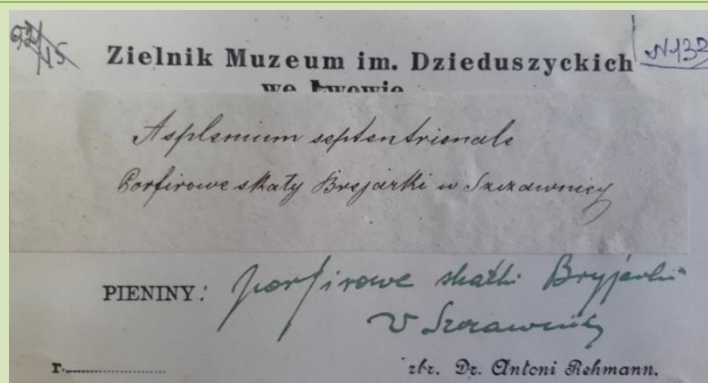 92/15
Zielnik Muzeum im. Dzieduszyckich
N132
we Lwowie
Asplenium septentrionale
Porfirowe skały Bryjarki w Szczawnicy
PIENINY: porfirowe skałki Bryjarki
w Szczawnicy
r.
zbr. Dr. Antoni Rehmann.